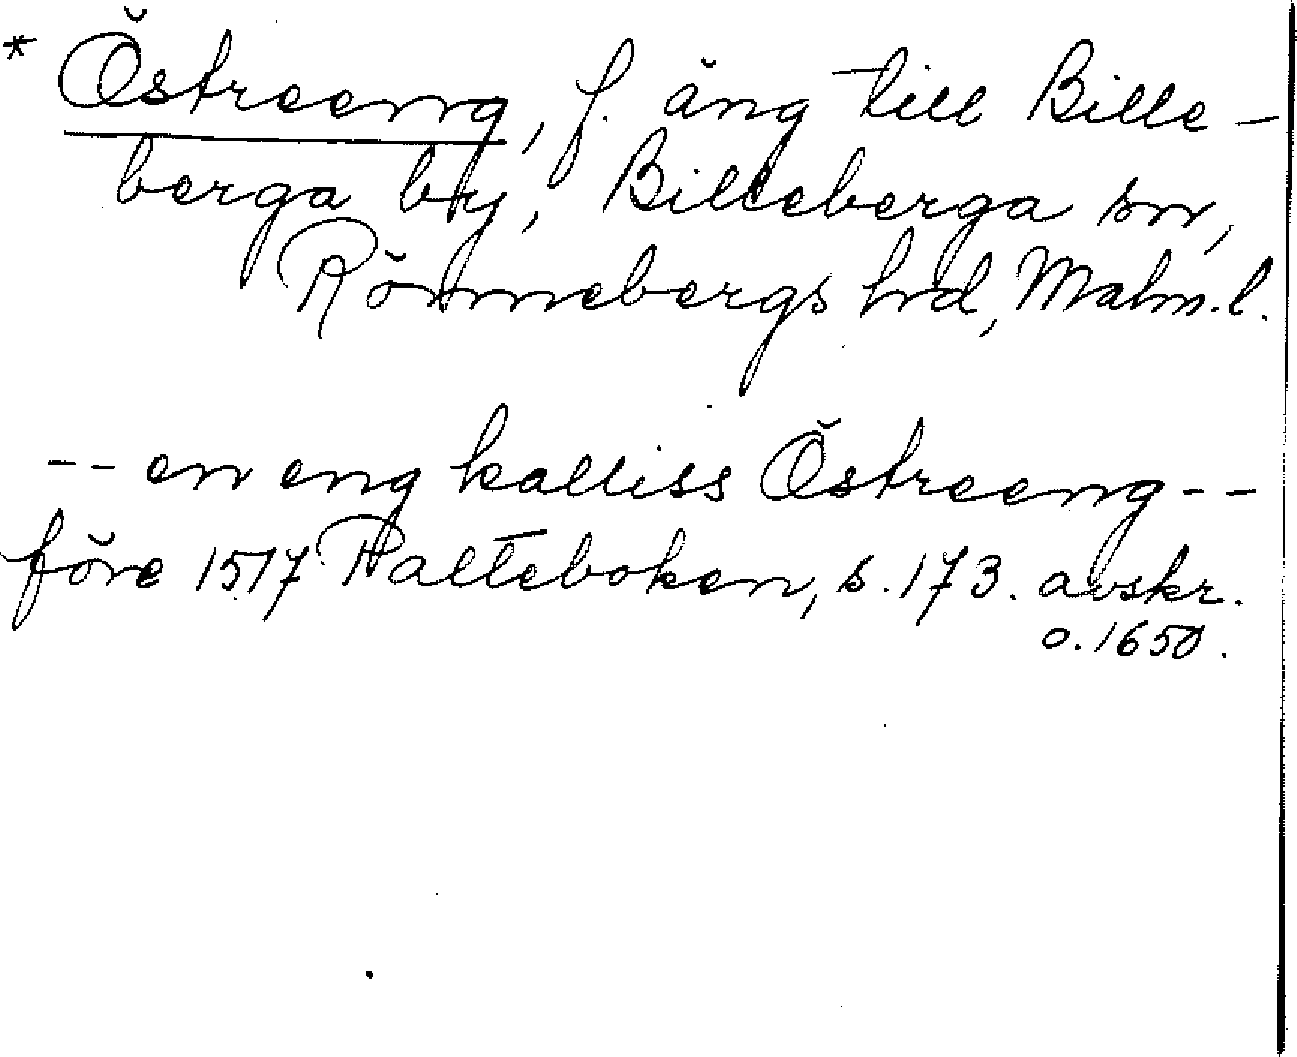 * Östreeng, f. äng till Bille-
berga by, Billeberga sn,
Rönnebergs hrd, Malm.l.
-- en eng kalliss Östreeng --
före 1517 Palteboken, s. 173. avskr.
o. 1650.